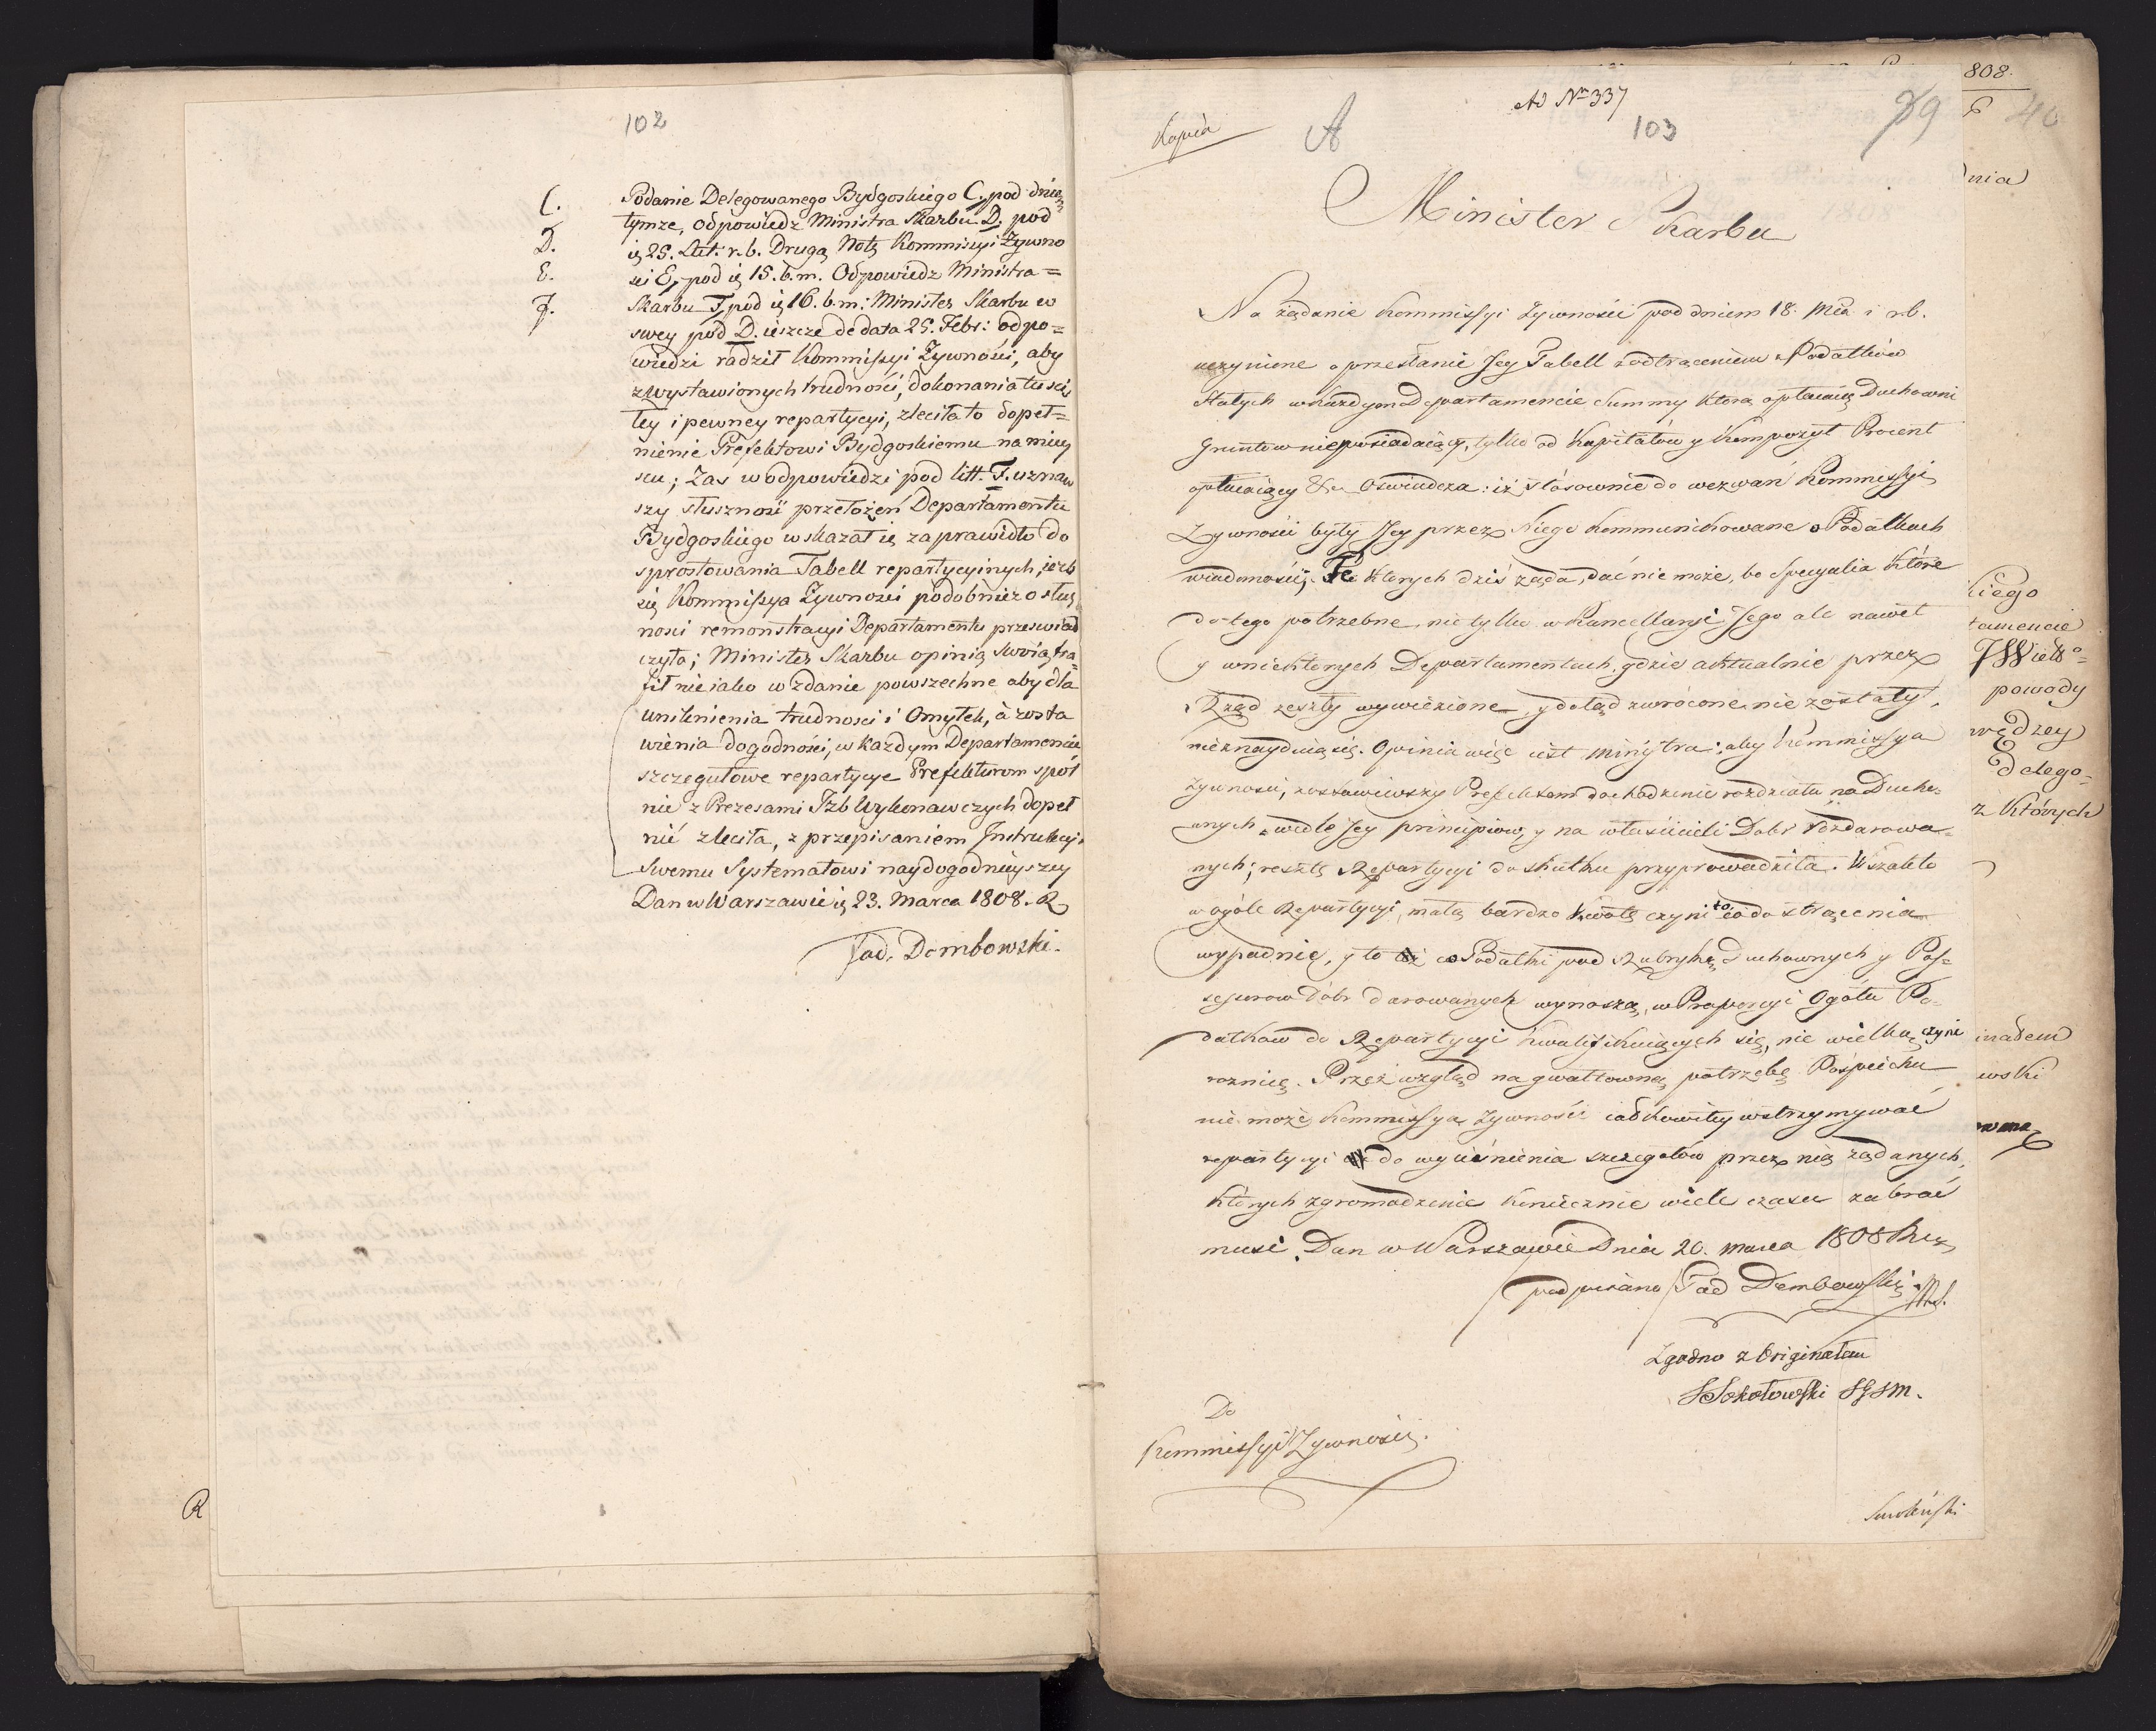 102
C. Podanie Delegowanego Bydgoskiego C, pod dniem
tymze, odpowiedz Ministra Skarbu D. pod
D. ią 25. Lut: r. b. Drugą Notę Kommissyi Żywno
E. sci E, pod ią 15. b. m. Odpowiedz Ministra =
F. Skarbu F, pod ią 16. b. m: Minister Skarbu w
swey pod D. ieszcze de data 25. Febr: odpo=
wiedzi radził Kommissyi Żywności, aby
z wystawionych trudności, dokonania tu scis
łey i pewney repartycyi, zleciła to dopeł=
nienie Prefektowi Bydgoskiemu na miey
scu; Zas w odpowiedzi pod litt. F. uznaw
szy słuszność przełożeń Departamentu
Bydgoskiego wskazał ią za prawidło do
sprostowania Tabell repartycyinych, ieżeli
się Kommissya Żywności podobnież o słusz
nosci remonstracyi Departamentu przeswiad
czyła; Minister Skarbu opinią swoią tra=
fił nieiako w zdanie powszechne aby dla
uniknienia trudnosci i Omyłek, à zosta
wienia dogodności, w każdym Departamencie
szczegułowe repartycye Prefekturom spól
nie z Prezesami Izb Wykonawczych dopeł
nić zleciła, z przepisaniem Instrukcyi
Swemu Systematowi naydogodnieyszey
Dan w Warszawie ią 23. Marca 1808. R
Tad. Dembowski.
R
Kopia
A
Ad Nr 337
103
39
Minister Skarbu
Na żądanie Kommissyi żywności pod dniem 18. Mca i r. b.
uczynione o przesłanie Jey Tabell z odtrąceniem Podatków
Stałych w każdym Departamencie Summy którą opłacaią Duchowni
Gruntow nieposiadaiący, tylko od Kapitałów y Kompozyt Procent
opłacaiący &c. Oswiadcza: iż stosownie do wezwań Kommissyi
Żywności były Jey przez Niego Kommunikowane o Podatkach
wiadomości; Te których dziś żąda, dać nie może, bo specyalia które
do tego potrzebne nie tylko w Kancellaryi Jego ale nawet
y w niektorych Departamentach, gdzie aktualnie przez
Rząd zeszły wywiezione, y dotąd zwrócone nie zostały,
nieznayduią się. Opinia więc iest Ministra: aby Kommissya
żywności, zostawiwszy Prefektom dochodzenie rozdziału na Ducho=
wnych wedle Jey principiow, y na własćicieli Dobr rozdarowa=
nych; resztę Repartycyi do skutku przyprowadziła. Wszakto
w ogóle Repartycyi, małą bardzo Kwotę czyni to co do strącenia
wypadnie, y to co Podatki pod Rubryką Duchownych y Pos=
sessorow Dóbr darowanych wynoszą, w Proporcyi Ogółu Po=
datków do Repartycyi kwalifikuiących się, nie wielką czynie
roznicę. Przez wzgląd na gwałtowną potrzebę Pośpiechu
nie może Kommissya Żywności całkowitey wstrzymywać
repartycyi do wyiaśnienia szczegołow przez nią żądanych,
których zgromadzenie koniecznie wiele czasu zabrać
musi. Dan w Warszawie Dnia 20. marca 1808 Rku
podpisano Tad Dembowski
Zgodno z Originałem
Sokołowski SJSM.
Do
Kommissyi Żywności.
808.
40
dnia
kiego
tamencie
JWielo=
powody
wędzey
Delego=
z których
inałem
wski